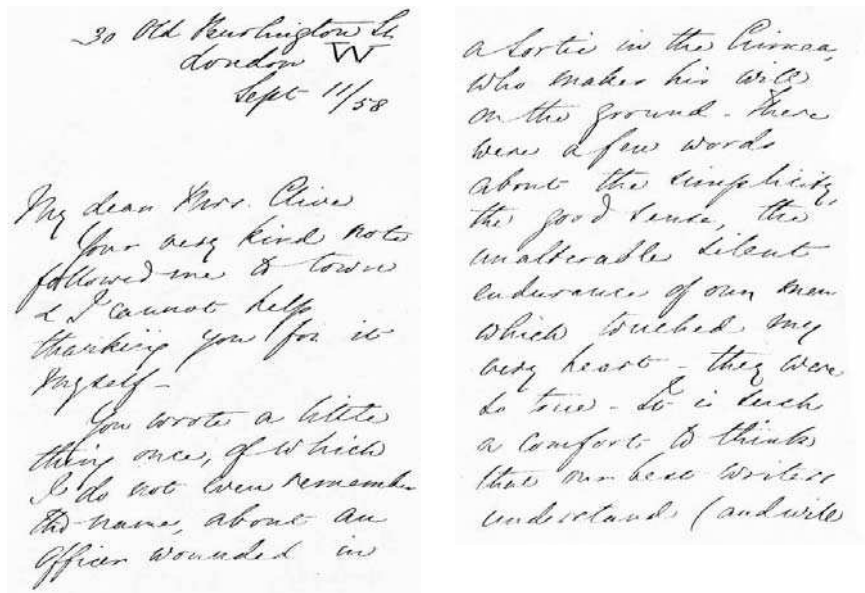 30 Old Burlington St.
London W
Sept 11/58
My dear Mrs. Clive
Your very kind note
followed me to town
& I cannot help
thanking you for it
myself -
You wrote a little
thing once, of which
I do not even remember
the name, about an
Officer wounded in
a Sortie in the Crimea,
who makes his will
on the ground - There
were a few words
about the simplicity,
the good sense, the
unalterable silent
endurance of our men
which touched my
very heart - they were
so true - It is such
a comfort to think
that our best writers
understand (and will